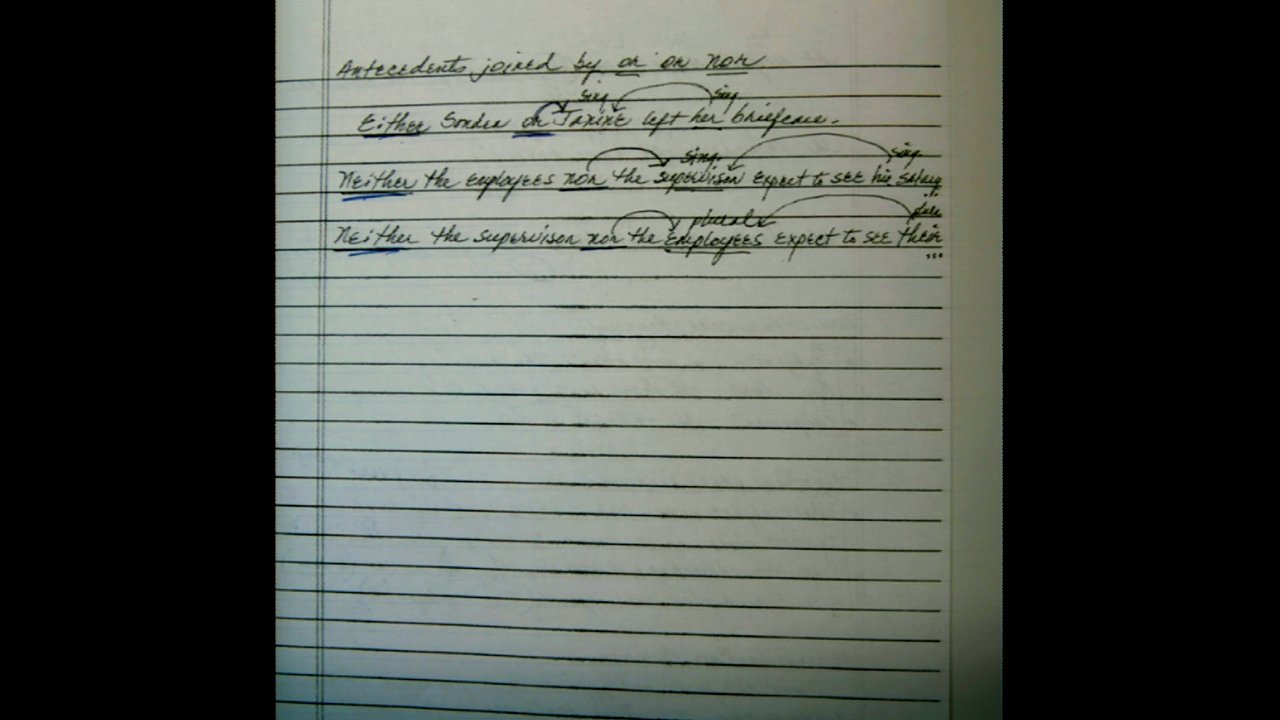 Antecedents joined by or or nor
sing sing
Either Sondra or Janine left her briefcase.
sing. sing.
Neither the employees nor the supervisor expect to see his salary
...
plural plur.
Neither the supervisor nor the employees expect to see their
...